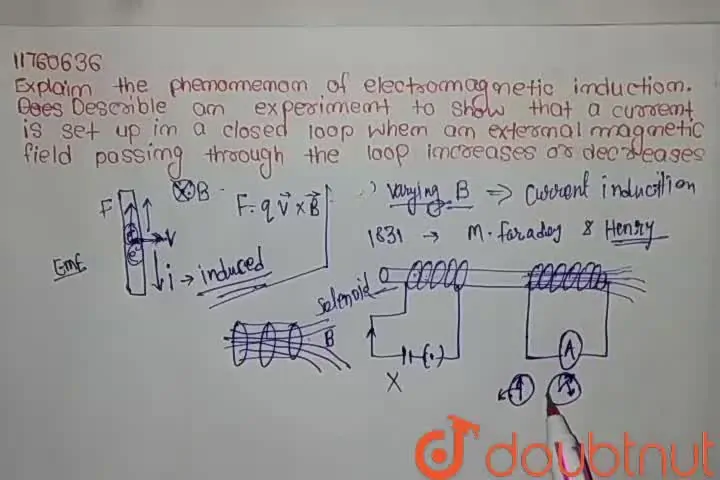 11760636
Explain the phenomenon of electromagnetic induction.
Does Describle an experiment to show that a current
is set up in a closed loop when an external magnetic
field passing through the loop increases or decreases
F B F = q V x B varying B ⇒ Current induction
V
1831 → M. faraday & Henry
Emf e- i → induced
solenoid
B
A
X
doubtnut